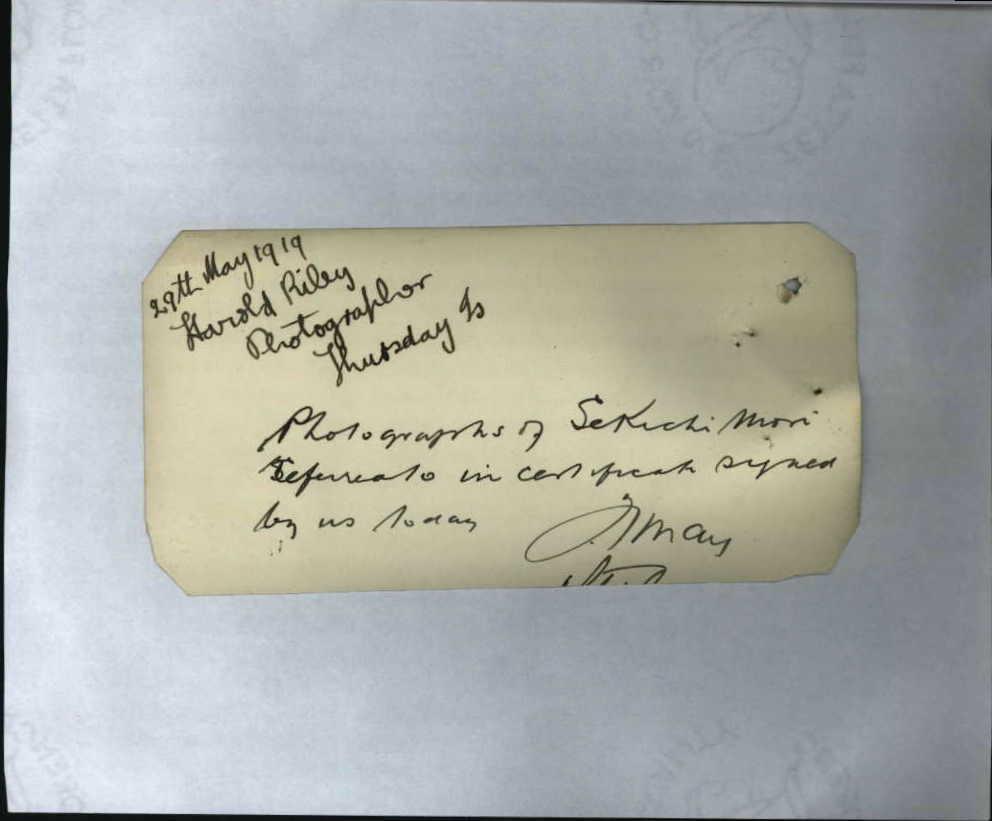 29th May 1919
Harold Riley
Photographer
Thursday Is
Photographs of Sekichi Mori
referred to in certificate signed
by us today
May